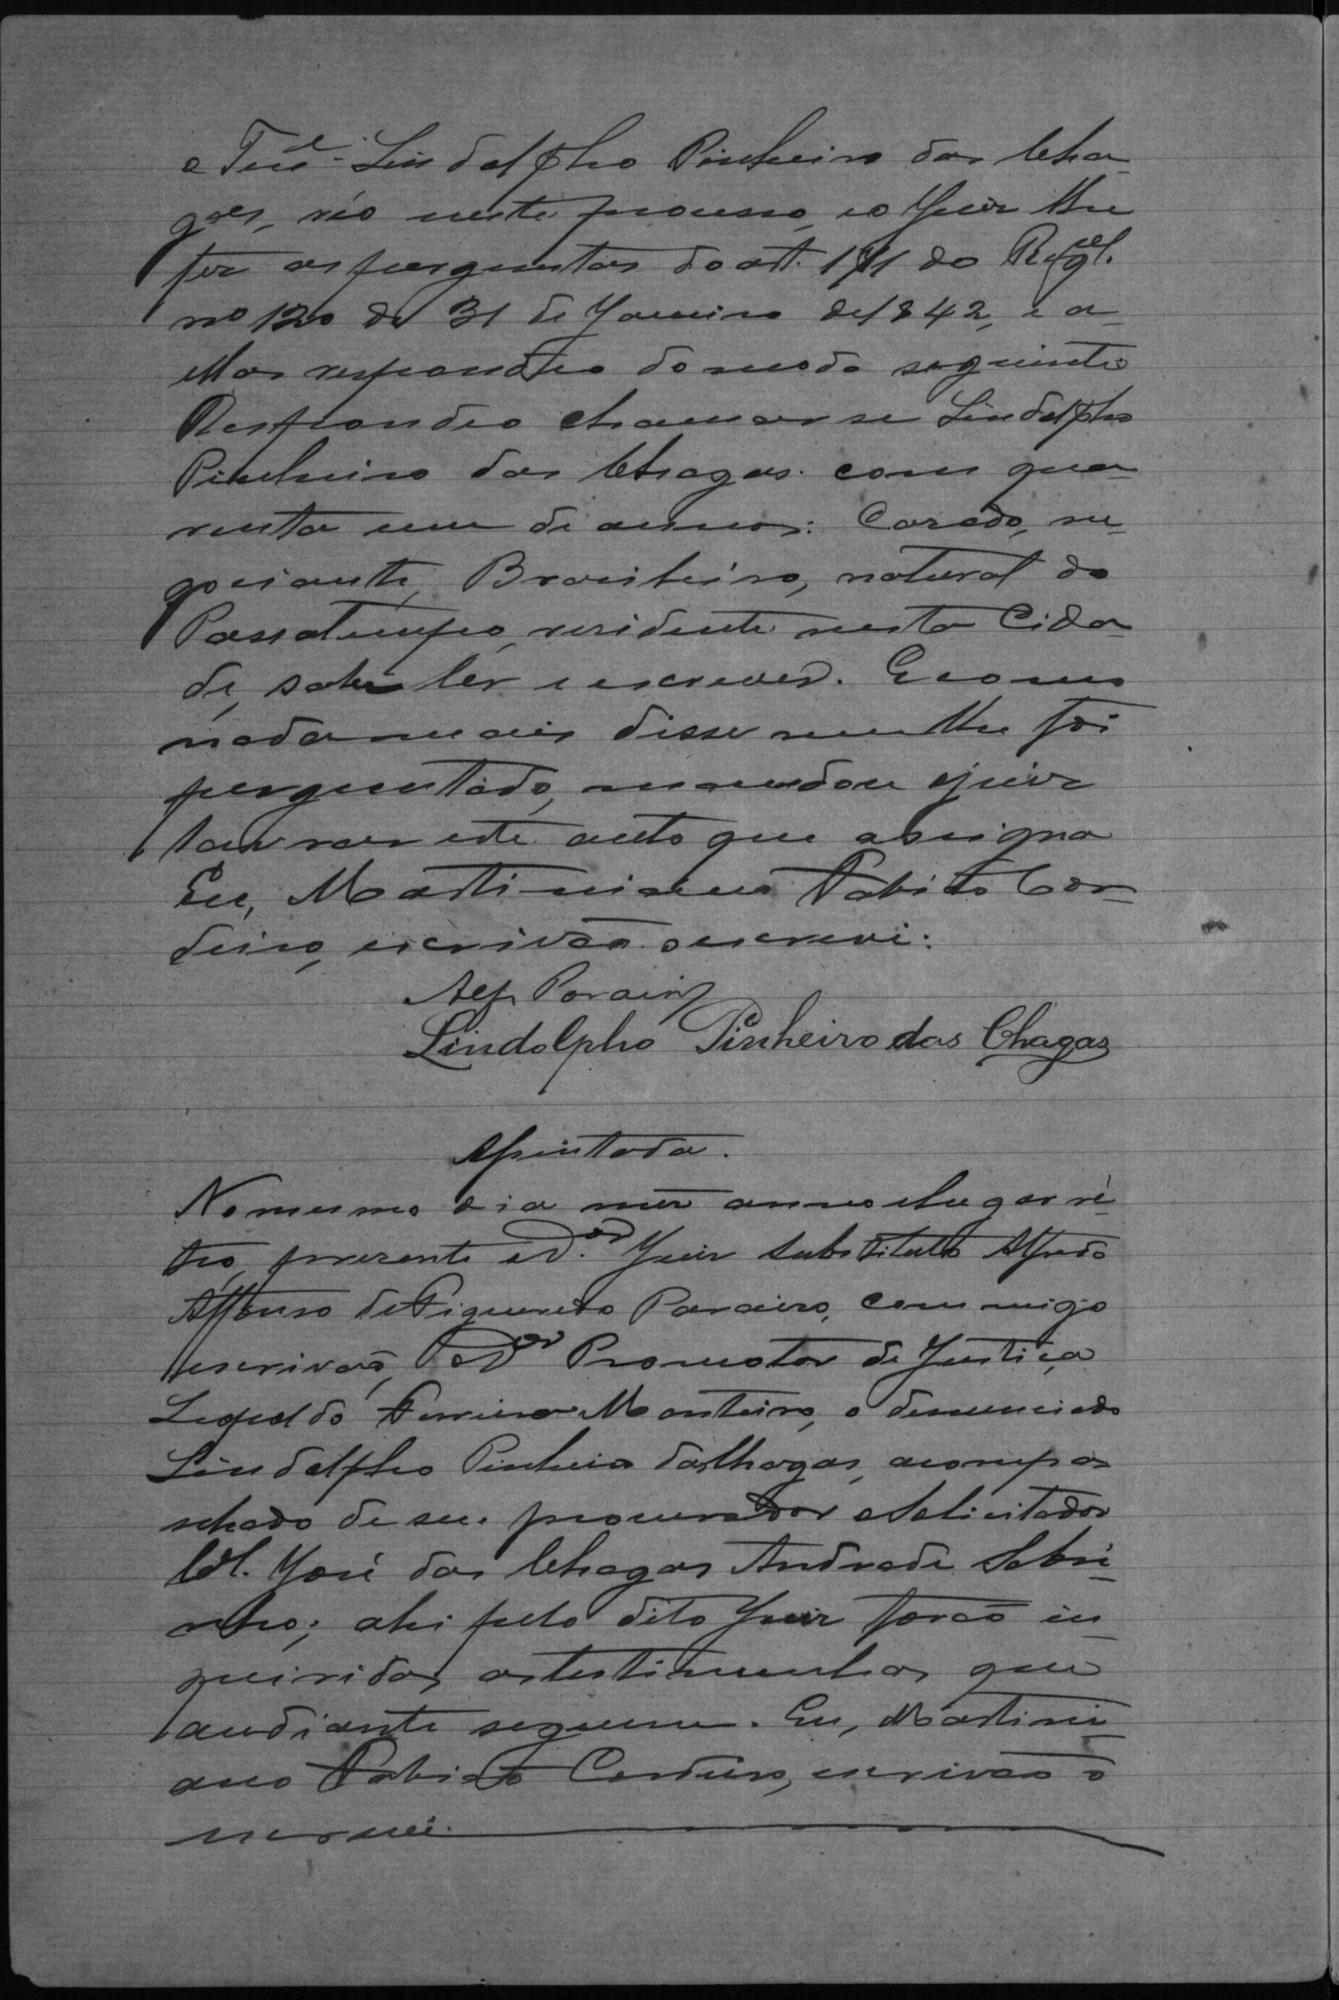 o Tene. Lindolpho Pinheiro das Cha-
gas, réo neste processo, e o Juiz lhe
fez as perguntas do art. 171 do Regul.
nº 120 de 31 de Janeiro de 1842, e a
ellas respondeo do modo seguinte
Respondeo chamar-se Lindolpho
Pinheiro das Chagas. com qua-
renta um de annos: Casado, ne-
gociante, Brasileiro, natural do
Passatempo, residente nesta Cida-
de, sabe ler e escrever. E como
nada mais disse nem lhe foi
perguntado, mandou o juiz
lavrar este auto que assigna
Eu, Martiniano Fabião Cor-
deiro, escrivão o escrevi:
Alf. Paraizo
Lindolpho Pinheiro das Chagas
Assentada.
No mesmo dia mez anno e lugar re-
tro, presente o Dor. Juiz Substituto Alfredo
Affonso de Figueiredo Paraizo, commigo
escrivão, o Dor Promotor de Justiça
Leopoldo Ferreira Monteiro, o denunciado
Lindolpho Pinheiro das Chagas, acompa-
nhado de seu procurador o Solicitador
Cel. José das Chagas Andrade Sobri-
nho; ahi pelo dito Juiz forão in-
queridas as testimunhas que
aodiante seguem. Eu, Martini-
ano Fabião Cordeiro, escrivão o
escrevi.